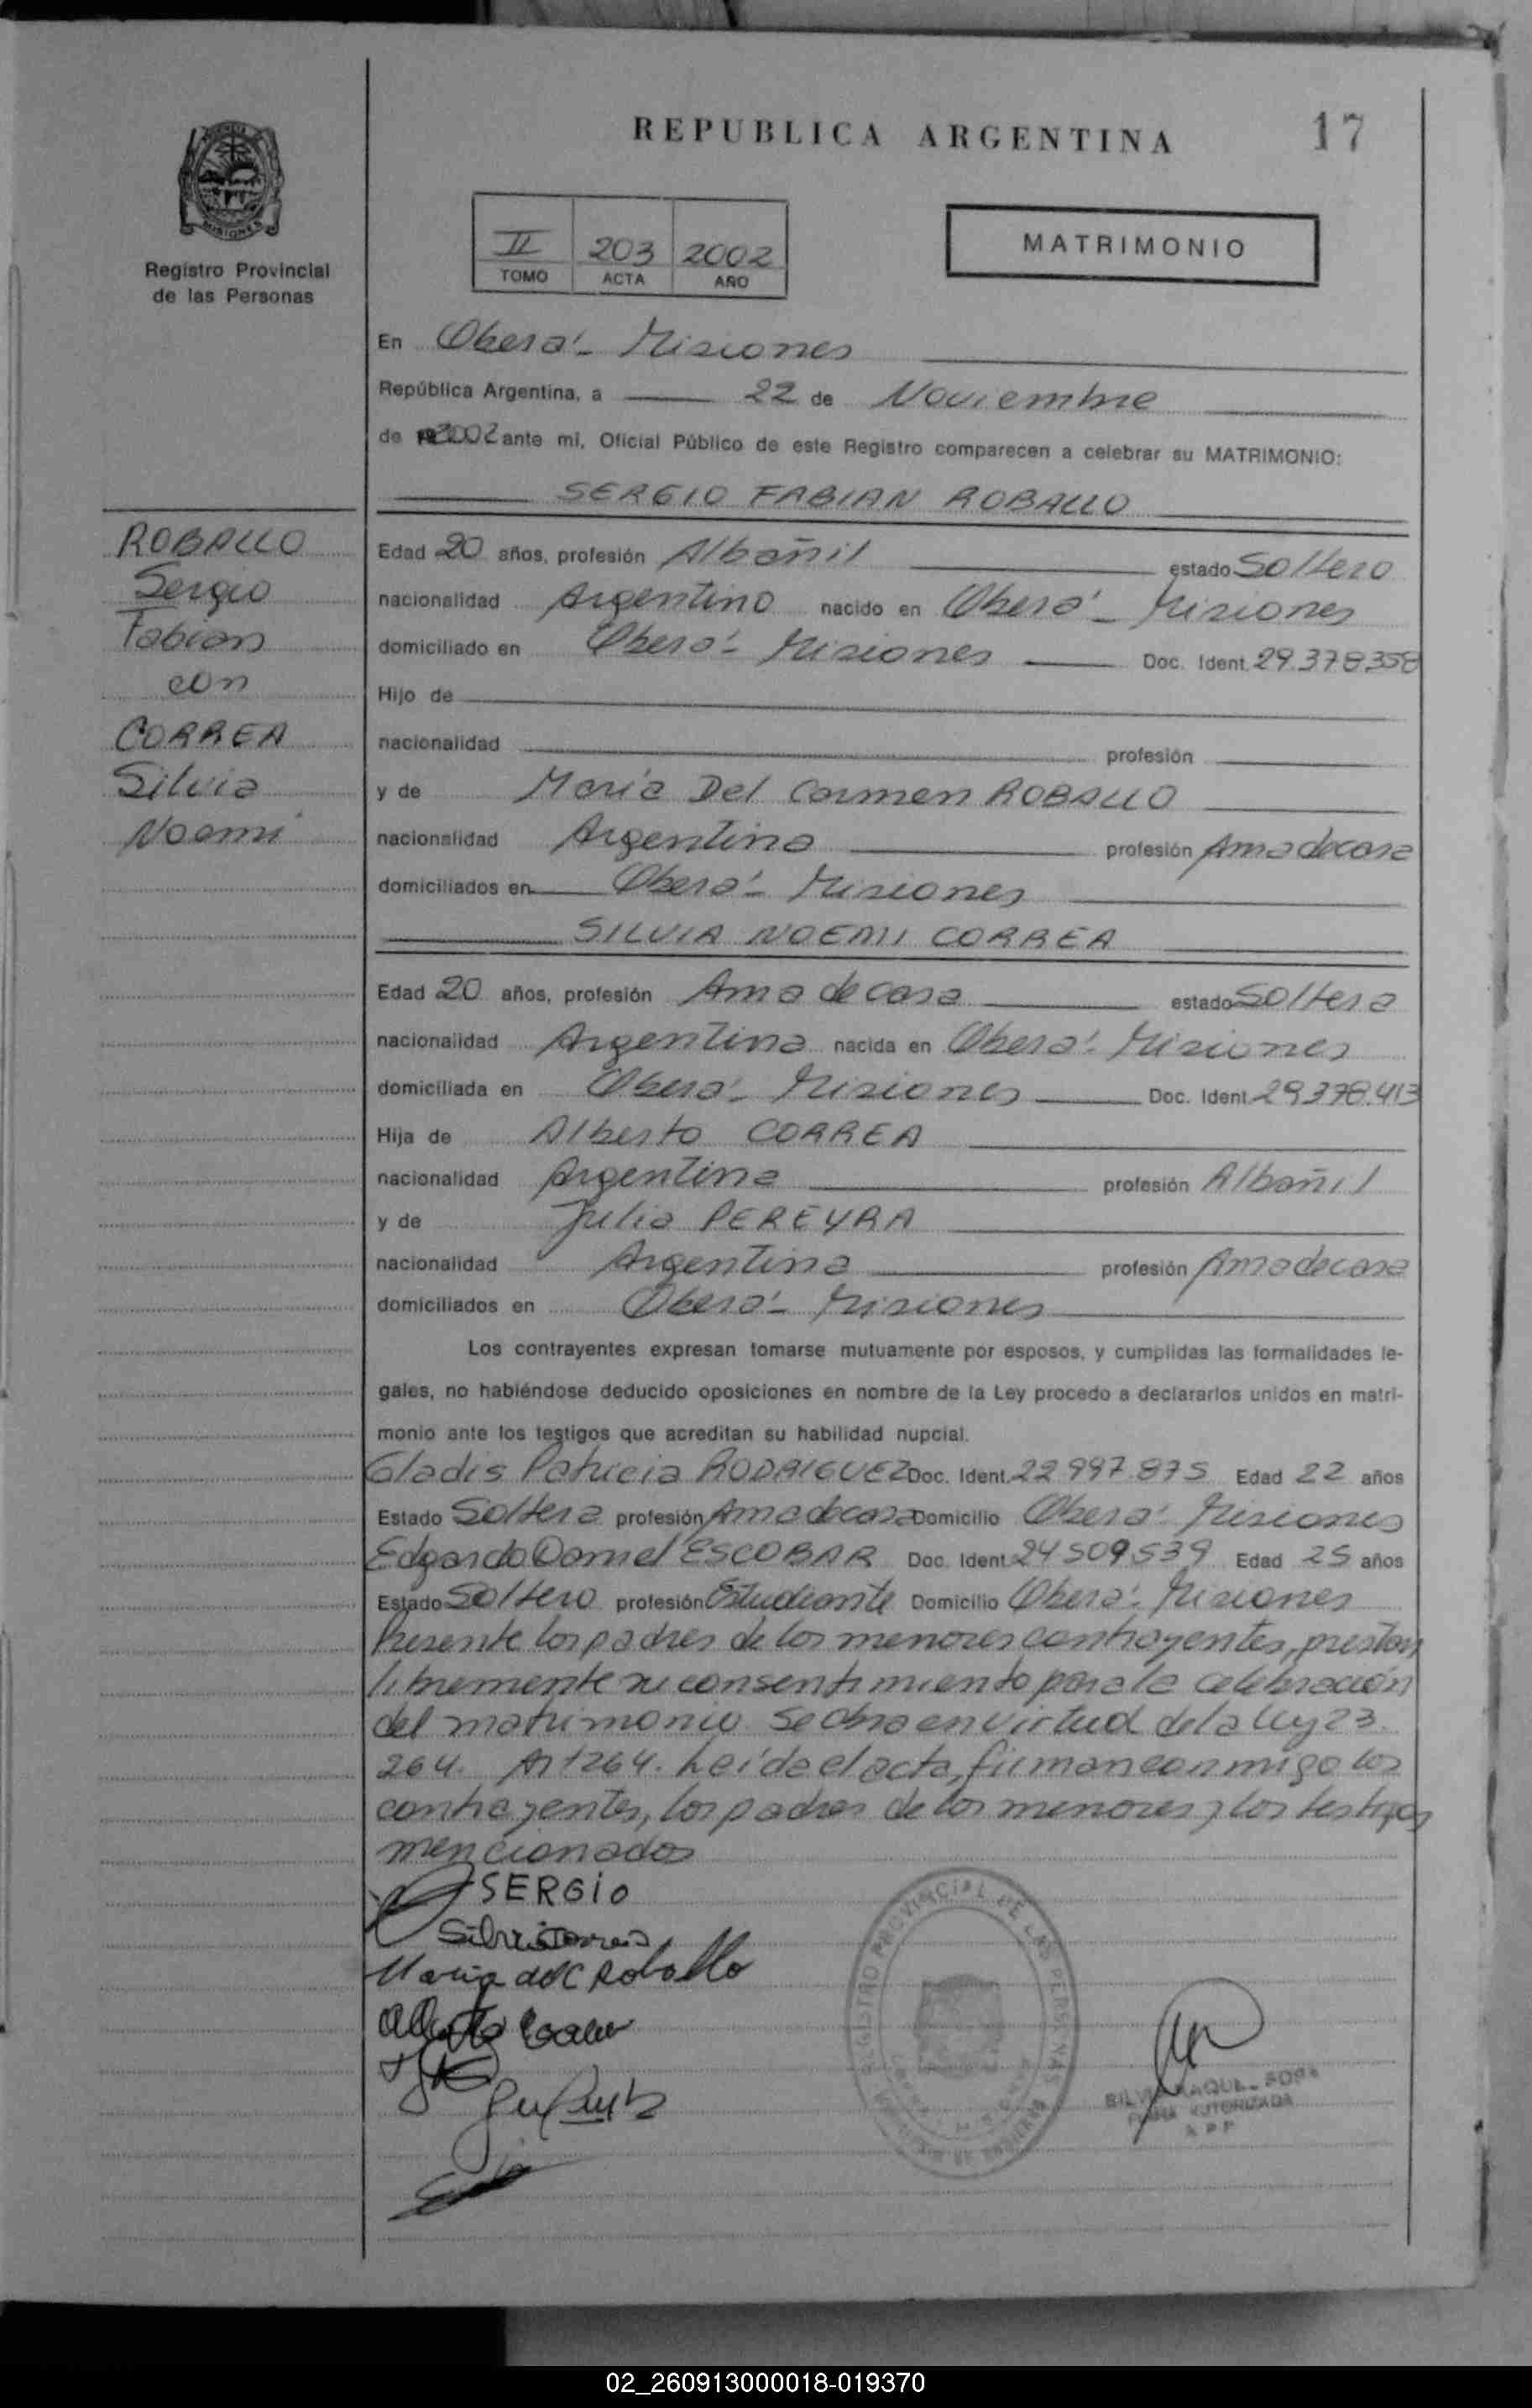 REPUBLICA ARGENTINA
17
MISIONES
Registro Provincial
de las Personas
II 203 2002
TOMO ACTA AÑO
MATRIMONIO
En Oberá - Misiones
República Argentina, a 22 de Noviembre
de 2002 ante mí, Oficial Público de este Registro comparecen a celebrar su MATRIMONIO:
SERGIO FABIAN ROBALLO
ROBALLO
Sergio
Fabian
con
CORREA
Silvia
Noemi
Edad 20 años, profesión Albañil estado Soltero
nacionalidad Argentino nacido en Oberá - Misiones
domiciliado en Oberá - Misiones Doc. Ident. 29.378358
Hijo de
nacionalidad profesión
y de Maria Del Carmen ROBALLO
nacionalidad Argentina profesión Ama de casa
domiciliados en Oberá - Misiones
SILVIA NOEMI CORREA
Edad 20 años, profesión Ama de casa estado Soltera
nacionalidad Argentina nacida en Oberá - Misiones
domiciliada en Oberá - Misiones Doc. Ident. 29.378.413
Hija de Alberto CORREA
nacionalidad Argentina profesión Albañil
y de Julia PEREYRA
nacionalidad Argentina profesión Ama de casa
domiciliados en Oberá - Misiones
Los contrayentes expresan tomarse mutuamente por esposos, y cumplidas las formalidades le-
gales, no habiéndose deducido oposiciones en nombre de la Ley procedo a declararlos unidos en matri-
monio ante los testigos que acreditan su habilidad nupcial.
Gladis Patricia RODRIGUEZ Doc. Ident. 22 997.875 Edad 22 años
Estado Soltera profesión Ama de casa Domicilio Oberá - Misiones
Edgardo Daniel ESCOBAR Doc. Ident. 24509539 Edad 25 años
Estado Soltero profesión Estudiante Domicilio Oberá - Misiones
Presente los padres de los menores contrayentes, prestan
libremente su consentimiento para la celebración
del matrimonio. Se obra en virtud de la ley 23.
264. Art 264. Leída el acta, firman conmigo los
contrayentes, los padres de los menores y los testigos
mencionados
SERGIO
Silvia Correa
Maria del C Roballo
Alberto
REGISTRO PROVINCIAL DE LAS PERSONAS
SILVIA RAQUEL
FIRMA AUTORIZADA
02_260913000018-019370